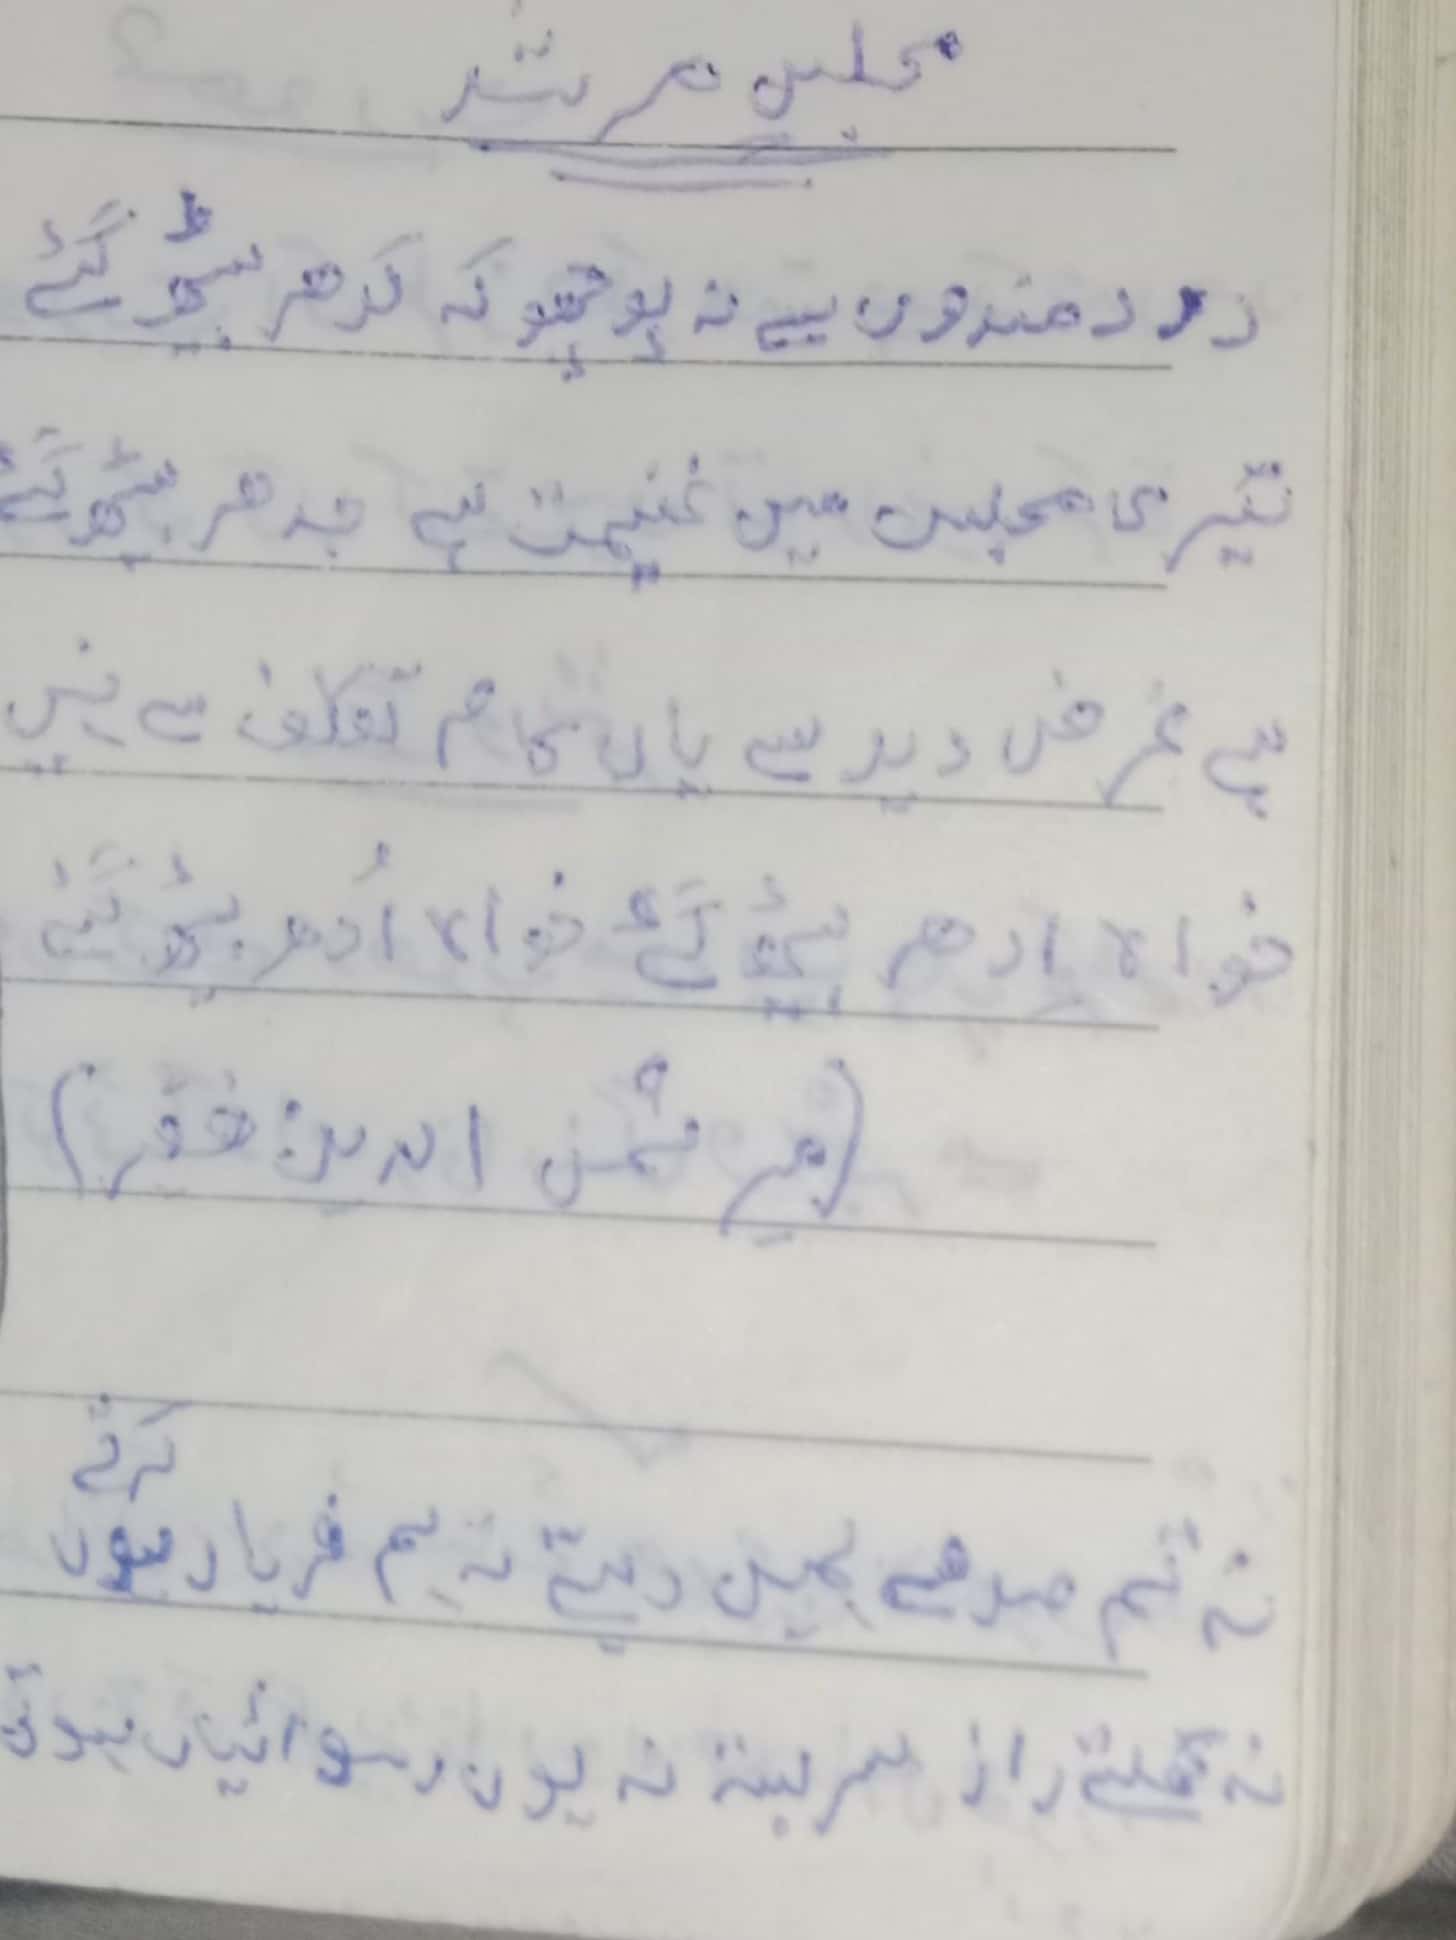 مجلس مرشد
درد مندوں سے نہ پوچھو کہ کدھر بیٹھ گئے
تیری مجلس میں غنیمت ہے جدھر بیٹھ گئے
ہے غرض دید سے یاں کام تکلف سے نہیں
خواہ ادھر بیٹھ گئے خواہ اُدھر بیٹھ گئے
(میر شمس الدین: فقیر)
نہ تم صدمے ہمیں دیتے نہ ہم فریاد یوں کرتے
نہ کھلتے راز سربستہ نہ یوں رسوائیاں ہوتی